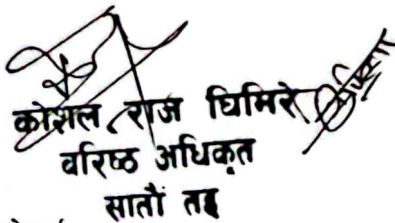 कोशल राज घिमिरे
वरिष्ठ अधिकृत
सातौं तह